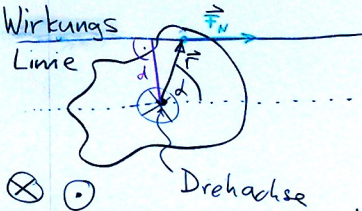 Wirkungs
F_N
Linie
d
r
α
Drehachse